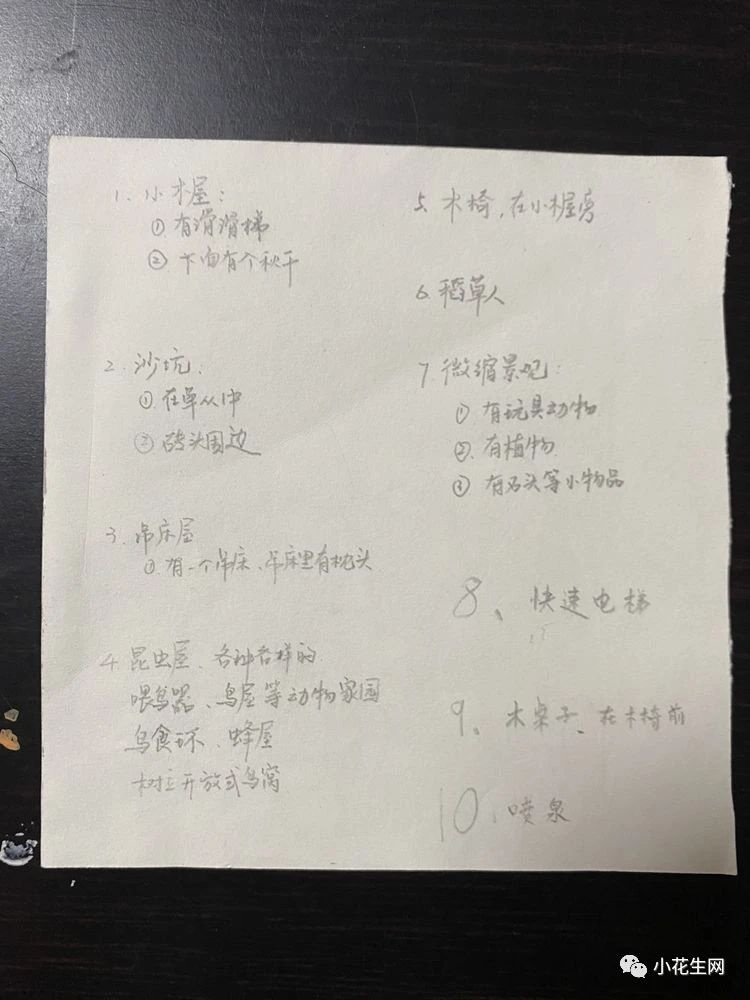 1、小木屋：
① 有滑滑梯
② 下面有个秋千
2、沙坑、
① 在草丛中
② 砖头围边
3、吊床屋
① 有一个吊床、吊床里有枕头
4、昆虫屋、各种各样的
喂鸟器、鸟屋等动物家园
鸟食环、蜂屋
树立开放式鸟窝
5、木椅，在小木屋旁
6、稻草人
7、微缩景观：
① 有玩具动物
② 有植物
③ 有石头等小物品
8、快速电梯
9、木桌子、在木椅前
10、喷泉
小花生网